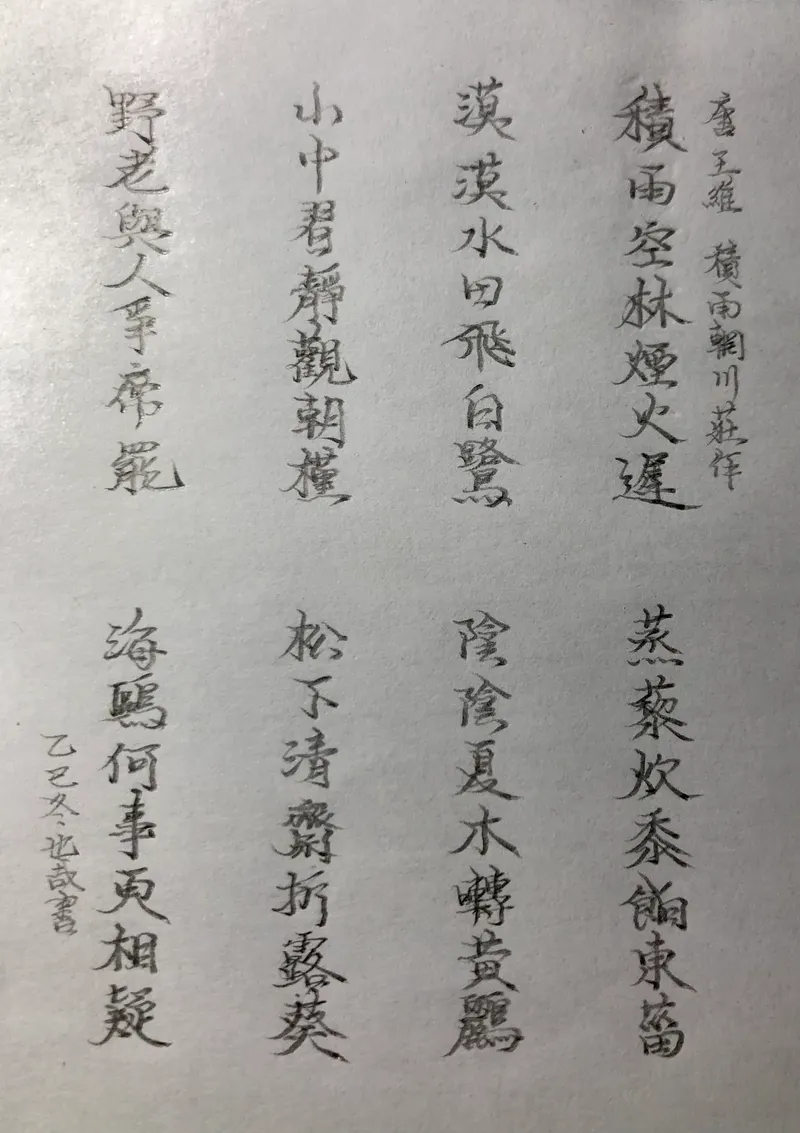 唐王維 積雨輞川莊作
積雨空林煙火遲
蒸藜炊黍餉東菑
漠漠水田飛白鷺
陰陰夏木囀黃鸝
山中習靜觀朝槿
松下清齋折露葵
野老與人爭席罷
海鷗何事更相疑
乙巳冬也哉書